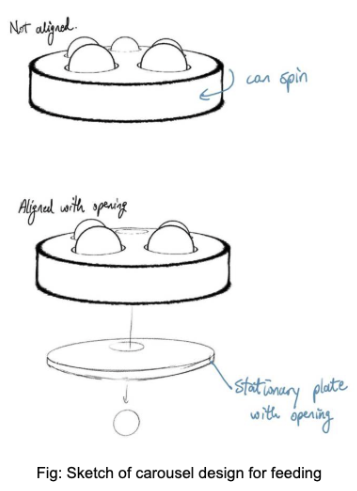 Not aligned.
can spin
Aligned with opening
Stationary plate
with opening
Fig: Sketch of carousel design for feeding